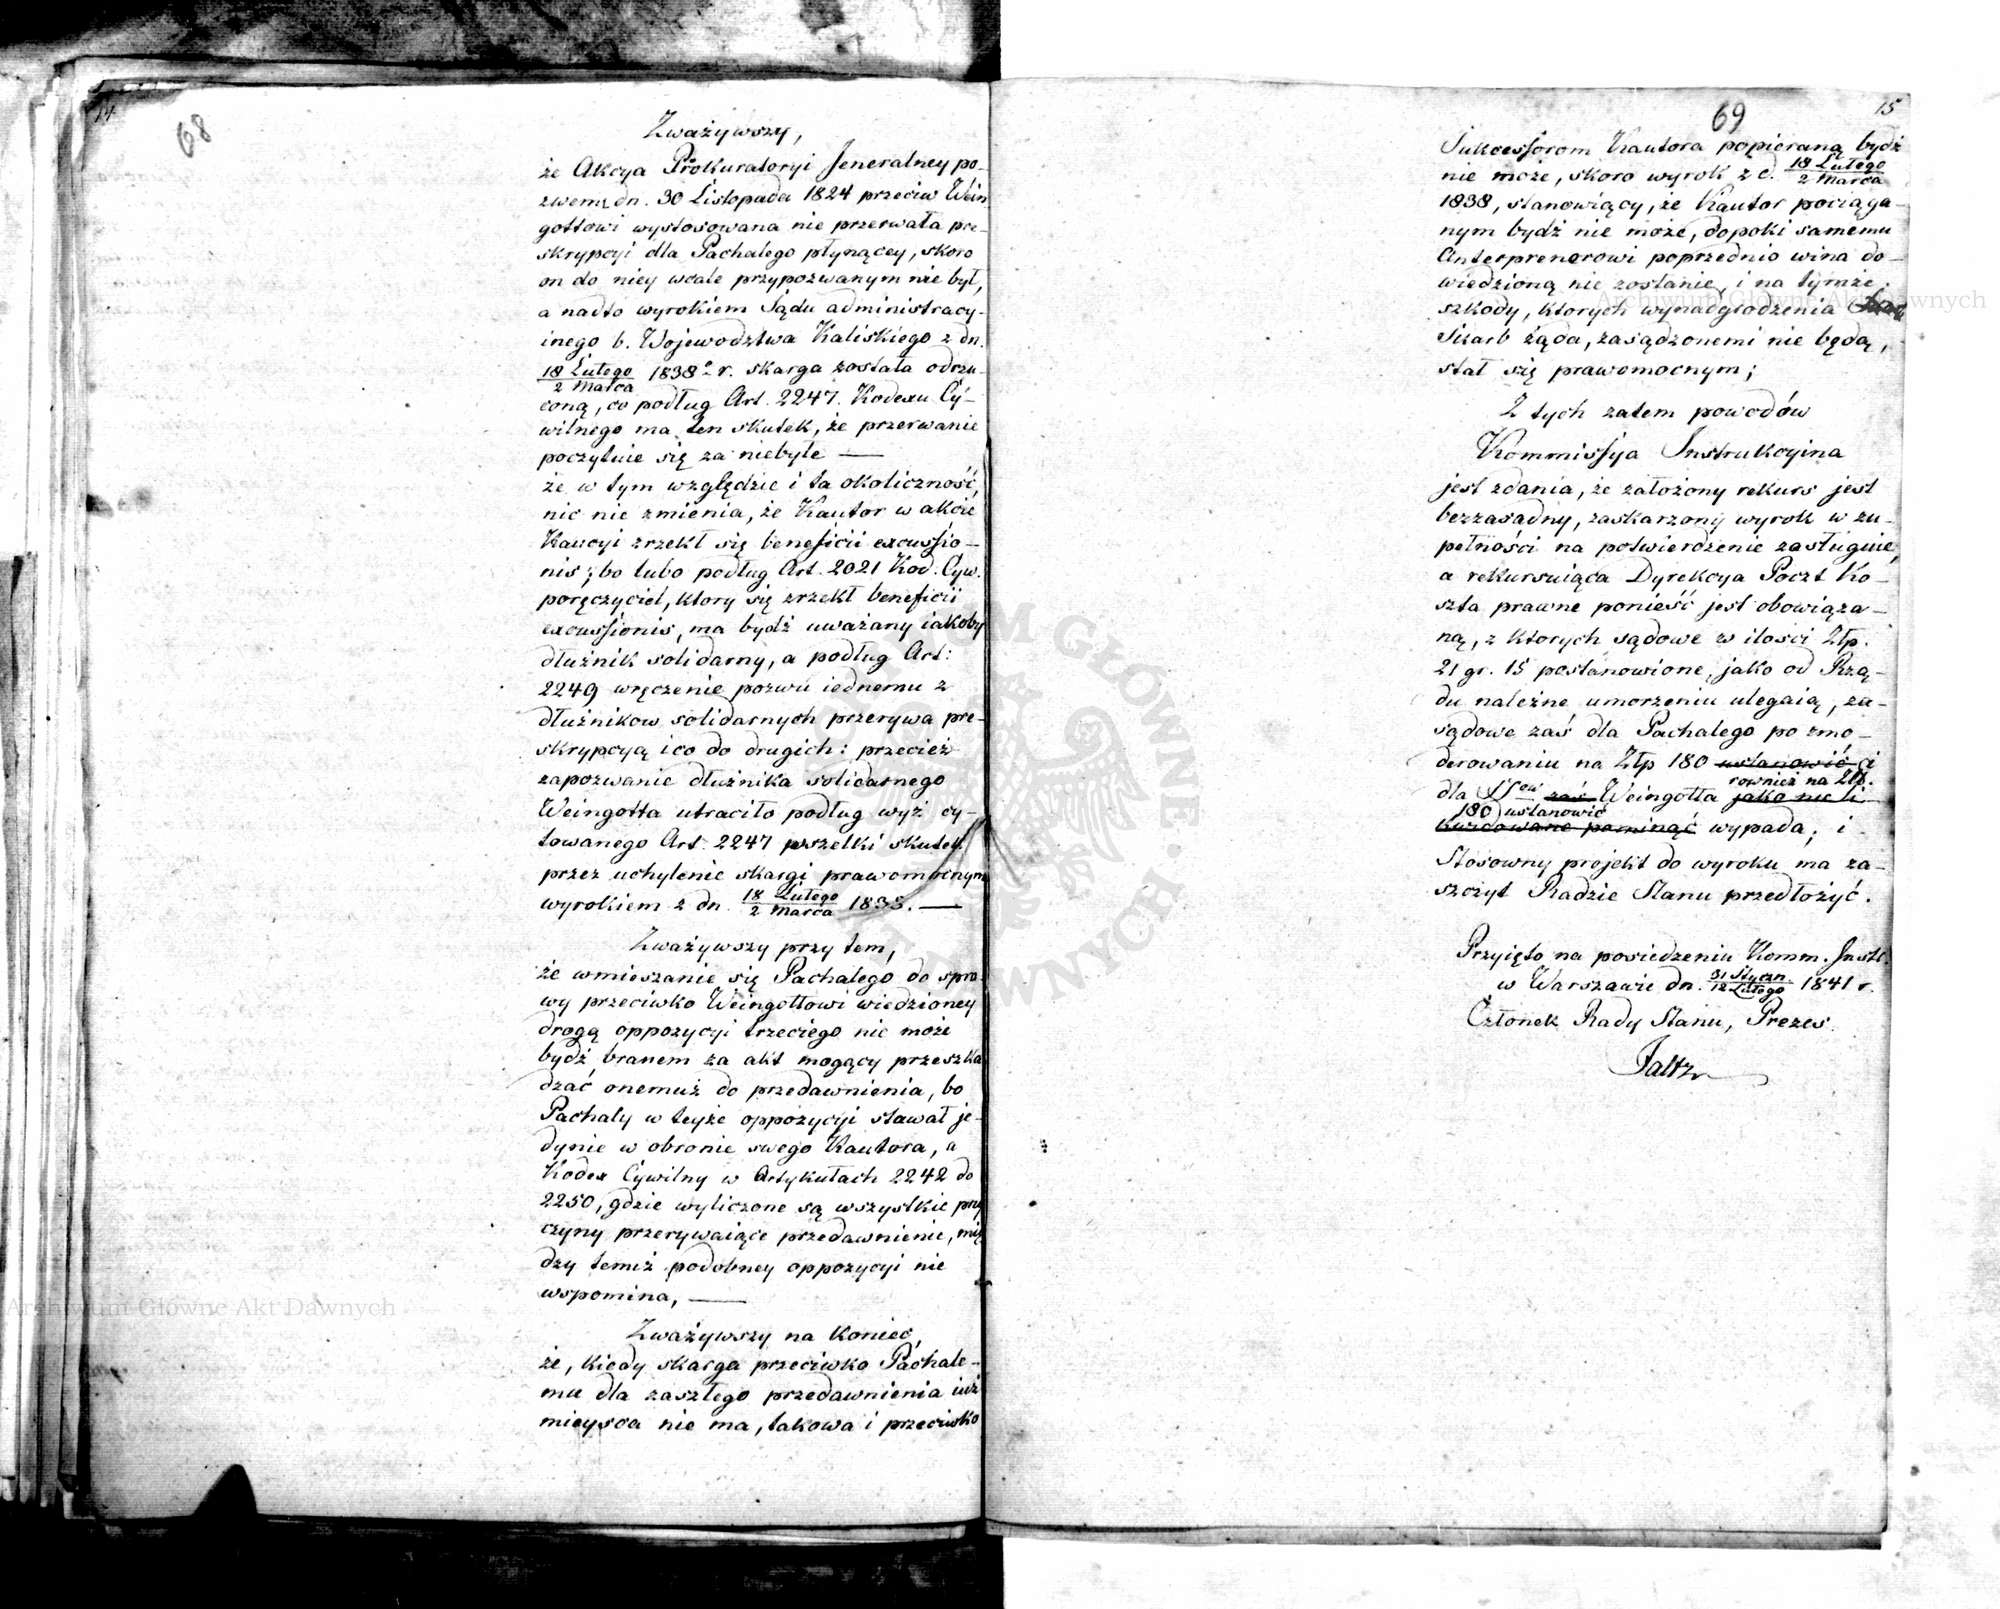 14
68
Zważywszy,
że Akcya Prokuratoryi Jeneralney po-
zwem dn. 30 Listopada 1824 przeciw Wein-
gottowi wystosowana nie przerwała pre-
skrypcyi dla Pachalego płynącey, skoro
on do niey wcale przypozwanym nie był,
a nadto wyrokiem Sądu administracy-
inego b. Wojewodztwa Kaliskiego z dn.
18 Lutego / 2 Marca 1838o r. skarga została odrzu-
coną, co podług Art. 2247. Kodexu Cy-
wilnego ma ten skutek, że przerwanie
poczytuie się za niebyłe —
że w tym względzie i ta okoliczność,
nic nie zmienia, że Kautor w akcie
Kaucyi zrzekł się beneficii excussio-
nis; bo lubo podług Art. 2021 Kod. Cyw.
poręczyciel, ktory się zrzekł beneficii
excussionis, ma bydź uważany iakoby
dłużnik solidarny, a podług Art:
2249 wręczenie pozwu iednemu z
dłużnikow solidarnych przerywa pre-
skrypcyą i co do drugich: przecież
zapozwanie dłużnika solidarnego
Weingotta utraciło podług wyż cy-
towanego Art. 2247 wszelki skutek
przez uchylenie skargi prawomocnym
wyrokiem z dn. 18 Lutego / 2 Marca 1838. —
Zważywszy przy tem,
że wmieszanie się Pachalego do spra-
wy przeciwko Weingottowi wiedzioney
drogą oppozycyi trzeciego nie może
bydź branem za akt mogący przeszka
dzać onemuż do przedawnienia, bo
Pachaly w teyże oppozycyi stawał je-
dynie w obronie swego Kautora, a
Kodex Cywilny w Artykułach 2242 do
2250, gdzie wyliczone są wszystkie przy
czyny przerywaiące przedawnienie, mię
dzy temiż podobney oppozycyi nie
wspomina, —
Zważywszy na koniec,
że, kiedy skarga przeciwko Pachale-
mu dla zaszłego przedawnienia iuż
mieysca nie ma, takowa i przeciwko
69
15
Sukcessorom Kautora popieraną bydź
nie może, skoro wyrok z d. 18 Lutego / 2 Marca
1838, stanowiący, że Kautor pociąga-
nym bydź nie może, dopoki samemu
Anterprenerowi poprzednio wina do-
wiedzioną nie zostanie, i na tymże
szkody, ktorych wynadgrodzenia
Skarb żąda, zasądzonemi nie będą,
stał się prawomocnym;
Z tych zatem powodów
Kommissya Instrukcyina
jest zdania, że założony rekurs jest
bezzasadny, zaskarzony wyrok w zu-
pełności na potwierdzenie zasługuie,
a rekursuiąca Dyrekcya Poczt Ko-
szta prawne ponieść jest obowiąza-
ną, z ktorych sądowe w ilości Złp.
21 gr. 15 postanowione, jako od Rzą-
du należne umorzeniu ulegaią, za-
sądowe zaś dla Pachalego po zmo-
derowaniu na Złp 180 ustanowić i
rownież na Złp.
dla SSow zaś Weingotta jako nie li
180 ustanowić
kwidowane pominąć wypada; i
stosowny projekt do wyroku ma za-
szczyt Radzie Stanu przedłożyć.
Przyięto na posiedzeniu Komm. Instr.
w Warszawie dn. 31 Styczn. / 12 Lutego 1841 r.
Członek Rady Stanu, Prezes
Faltz
Archiwum Główne Akt Dawnych
Archiwum Główne Akt Dawnych